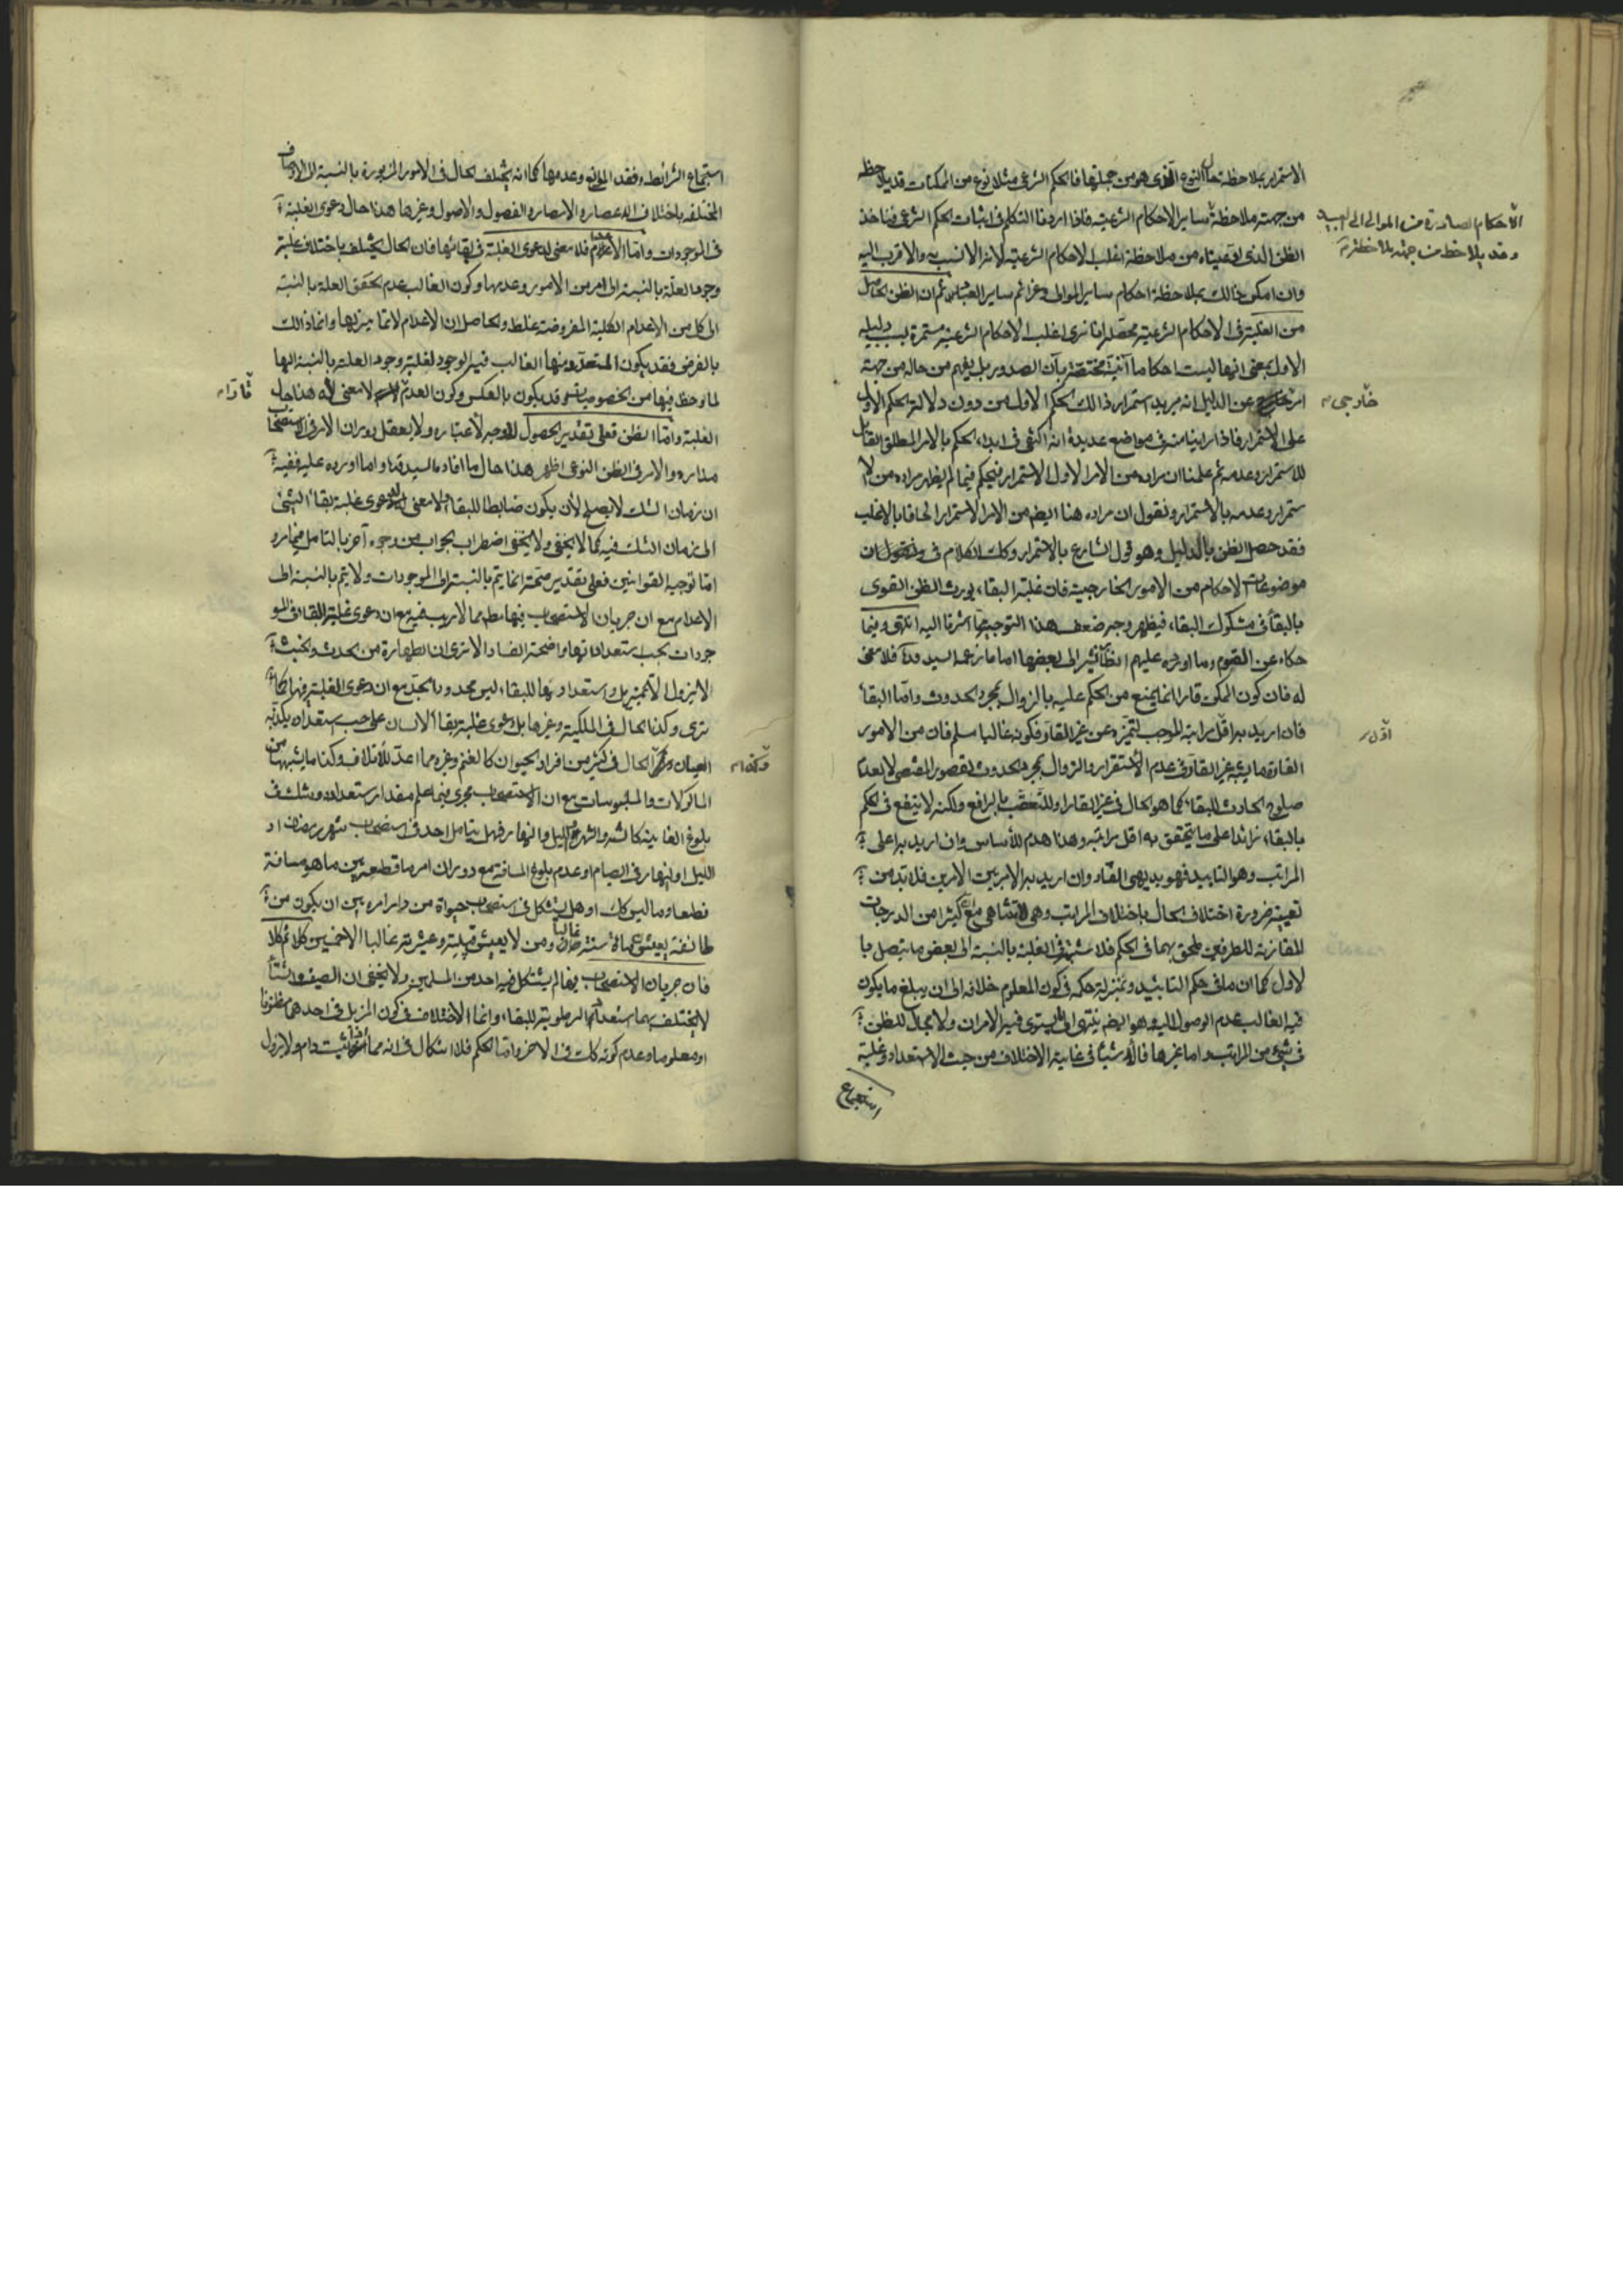 الاستمرار بملاحظة حال النوع الذى هو من جملتها فالحكم الشرعى مثلا نوع من الممكنات قد يلاحظ
من جهة ملاحظة ساير الاحكام الشرعية فاذا اردنا التكلم فى اثبات الحكم الشرعى فناخذ
الظن الذى ادعيناه من ملاحظة اغلب الاحكام الشرعية لانه الانسب به والاقرب اليه
وان امكن ذالك بملاحظة احكام ساير الموالى وعزائم ساير العباد ثم ان الظن الحاصل
من الغلبة فى الاحكام الشرعية محصله انا نرى اغلب الاحكام الشرعية مستمرة بسبب دليله
الاول بمعنى انها ليست احكاما آنية مختصة بآن الصدور بل يفهم من حاله من جهة
امر خارج عن الدليل انه يريد استمرار ذالك الحكم الاول من دون دلالة الحكم الاول
على الاستمرار فاذا راينا منه فى مواضع عديدة انه اكتفى فى ابداء الحكم بالامر المطلق القابل
للاستمرار وعدمه ثم علمنا ان مراده من الامر الاول الاستمرار فنحكم فيما لم يظهر مراده من الا
ستمرار وعدمه بالاستمرار ونقول ان مراده هنا ايضا من الامر الاستمرار الحاقا بالاغلب
فقد حصل الظن بالدليل وهو قول الشارع بالاستمرار وكك الكلام فى
موضوعات الاحكام من الامور الخارجية فان غلبة البقاء يورث الظن القوى
بالبقاء فى مشكوك البقاء فيظهر وجه ضعف هذا التوجيه اشرنا اليه انتهى وفيما
حكاه عن القوم وما اورده عليهم انظار نشير الى بعضها اما ما زعمه السيد قده فلا معنى
له فان كون الممكن قارا انما يمنع من الحكم عليه بالزوال بمجرد الحدوث وامّا البقاء
فان اريد به اقل مراتبه الموجب لتميزه عن غير القار فكونه غالبا مسلم فان من الامور
القارة ما يشبه غير القار فى عدم الاستقرار والزوال بمجرد الحدوث لقصور المقتضى لا بعدم
صلوح الحادث للبقاء كما هو الحال فى غير القار او للتعقب بالرافع ولكنه لا ينفع فى الحكم
بالبقاء زائدا على ما يتحقق به اقل مراتبه وهذا هدم للاساس وان اريد به اعلى
المراتب وهو التابيد فهو بديهى الفساد وان اريد به الامر بين الامرين فلا بد من
تعيينه ضرورة اختلاف الحال باختلاف المراتب وهى لا تتناهى مع ان كثيرا من الدرجات
المقارنة للطرفين ملحق بهما فى الحكم فلا شبهة فى الغلبة بالنسبة الى بعض ما يتصل با
لاول كما ان ما فى حكم التابيد وبمنزلة حكمه فى كون المعلوم خلافه الى ان يبلغ ما يكون
فيه الغالب عدم الوصول اليه وهو ايضا ينتهى الى ما يستوى فيه الامران ولا مجال للظن
فى شئ من المراتب واما غيرها فالاشياء فى غاية الاختلاف من حيث الاستعداد وغلبة
استجماع
الاحكام الصادرة من الموالى الى العبيد
وقد يلاحظ من جهة ملاحظة
خارجى
اوّل
استجماع الشرائط وفقد الموانع وعدمها كما انه يختلف الحال فى الامور المزبورة بالنسبة الى الاوصاف
المختلفة باختلاف الاعصار والامصار والفصول والاصول وغيرها هذا حال دعوى الغلبة
فى الموجودات وامّا الاعدام فلا معنى لدعوى الغلبة فى بقائها فان الحال يختلف باختلاف غلبة
وجود العلة بالنسبة الى امر من الامور وعدمها وكون الغالب عدم تحقق العلة بالنسبة
الى كل من الاعدام الكلية المفروضة غلط والحاصل ان الاعدام لا تمايز بينها وانما ذالك
بالفرض فقد يكون المتعدد منها الغالب فيه الوجود لغلبة وجود العلة بالنسبة اليها
لما لوحظ فيها من الخصوصيات وقد يكون بالعكس وكون العدم لا معنى له هذا حال
الغلبة وامّا الظن فعلى تقدير الحصول لا وجه لاعتباره ولا يعقل دوران الامر فى الاستصحاب
مداره والامر فى الظن النوعى اظهر هذا حال ما افاده السيد قده واما ما اورده عليه ففيه
ان زمان الشك لا يصلح لان يكون ضابطا للبقاء ولا معنى لدعوى غلبة بقاء الشئ
الى زمان الشك فيه كما لا يخفى ولا يخفى اضطراب الجواب من وجوه أخر بالتامل فيما مر و
امّا توجيه القوانين فعلى تقدير صحته انما يتم بالنسبة الى الموجودات ولا يتم بالنسبة الى
الاعدام مع ان جريان الاستصحاب فيها مما لا ريب فيه مع ان دعوى غلبة البقاء فى المو
جودات بحسب استعداداتها واضحة الفساد الا ترى ان الطهارة من الحدث والخبث
لا يزول الا بمزيل واستعدادها للبقاء ليس محدودا بحد مع ان دعوى الغلبة فيها كما
ترى وكذا الحال فى الملكية وغيرها بل دعوى غلبة بقاء الانسان على حسب استعداده يكذبه
العيان وكذا الحال فى كثير من افراد الحيوان كالغنم وغيره مما اعد للاتلاف وكذا ما يشبهها من
الماكولات والملبوسات مع ان الاستصحاب يجرى فيما علم مقدار استعداده وشك فى
بلوغ الغاية كالسنة والشهر والليل والنهار فهل يتامل احد فى استصحاب شهر رمضان او
الليل او النهار فى الصيام او عدم بلوغ المسافة مع دوران امر ما قطعه بين ما هو مسافة
قطعا وما ليس كك او هل يشكل فى استصحاب حيوة من دار امره بين ان يكون من
طائفة يعيش مائة سنة غالبا ومن لا يعيش قبيلته وعشيرته غالبا الا خمسين كلا ثم كلا
فان جريان الاستصحاب فيها لم يشكل فيه احد من المسلمين ولا يخفى ان الصيف والشتاء
لا يختلف بهما استعداد الرطوبة للبقاء وانما الاختلاف فى كون المزيل فى احدهما مظنونا
او معلوما وعدم كونه كك فى الاخر وامّا الحكم فلا اشكال فى انه مما اذا ثبت دام ولا يزول
قارا
وكذا